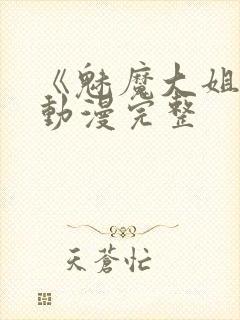 《魅魔大姐
動漫完整
天蒼忙